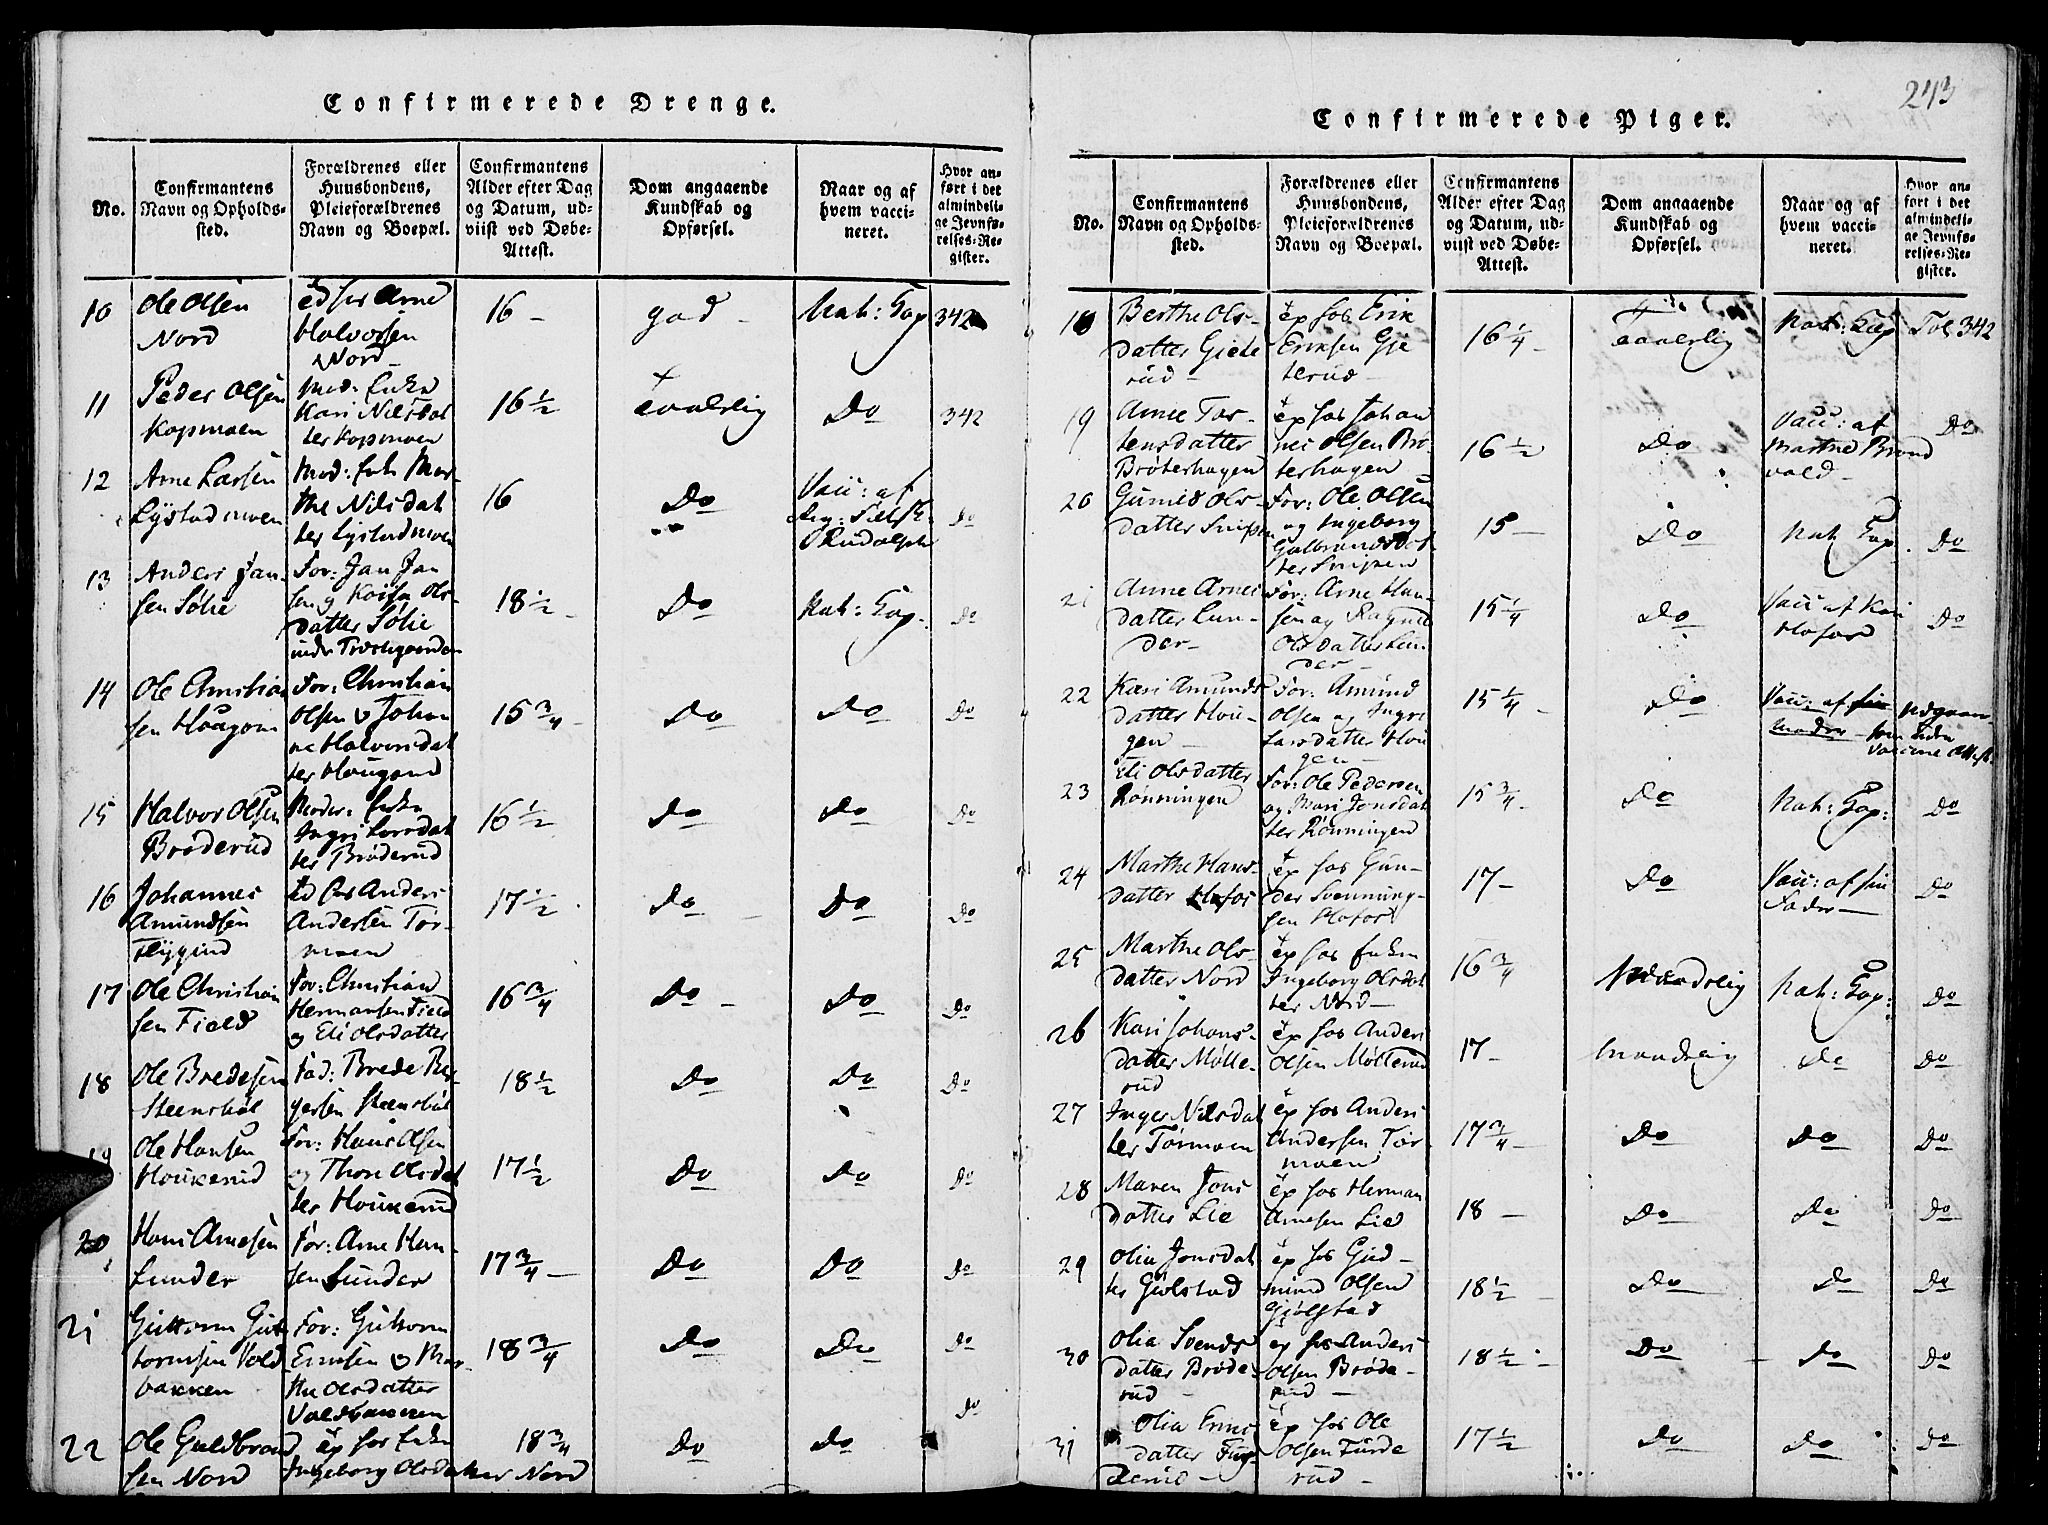 243
Confirmerede Drenge.
No.
Confirmantens
Navn og Opholds-
sted.
Forældrenes eller
Huusbondens,
Pleieforældrenes
Navn og Boepæl.
Confirmantens
Alder efter Dag
og Datum, ud-
viist ved Døbe-
Attest.
Dom angaaende
Kundskab og
Opførsel.
Naar og af
hvem vacci-
neret.
Hvor an-
ført i det
almindeli-
ge Jevnfø-
relses-Re-
gister.
10
Ole Olsen
Nord
Arne
Halvorsen
Nord
16 –
god –
Nat: Kop
342
11
Peder Olsen
Kopmoen
Mod: Enke
Kari Nilsdat
ter Kopmoen
16 1/2
Taalelig
Do
342
12
Arne Larsen
Lystadmoen
Mod: Enk Mar-
the Nilsdat
ter Lystadmoen
16
Do
Vacc: af
Rudolph
Do
13
Anders Jan-
sen Sølie
For: Jan Jan
sen og Kaisa Ols-
datter Sølie
18 1/2 -
Do
Nat: Kop.
Do
14
Ole Christian
sen Hougom
For: Christian
Olsen & Johan
ne Halvorsdat
ter Hougom
15 3/4 -
Do
Do
Do
15
Halvor Olsen
Brøderud
Moder: Enke
Ingri Larsdat
ter Brøderud
16 1/2
Do
Do
Do
16
Johannes
Amundsen
Flygind
hos Anders
Andersen Tør-
moen
17 1/2
Do
Do
Do
17
Ole Christian
sen Field
For: Christian
Hermansen Field
og Eli Olsdatter
16 3/4
Do -
Do
Do
18
Ole Bredesen
Steensbøl
Fad: Brede Bir-
gersen Steensbøl
18 1/2
Do
Do
Do
19
Ole Hansen
Houkerud
For: Hans Olsen
og Thore Olsdat
ter Houkerud
17 1/2
Do
Do
Do
20
Hans Arnesen
Lunder
For: Arne Han-
sen Lunder
17 3/4 -
Do
Do
Do
21
Guttorm Gut
tormsen Vold
bakken
For: Guttorm
Ernsen & Mar-
the Olsdatter
Voldbakken
18 3/4
Do
Do
Do
Do
22
Ole Guldbrand
sen Nord
hos Enke
Ingeborg Olsdatter Nord
18 3/4
Do
Do
Confirmerede Piger.
No.
Confirmantens
Navn og Opholds-
sted.
Forældrenes eller
Huusbondens,
Pleieforældrenes
Navn og Boepæl.
Confirmantens
Alder efter Dag
og Datum, ud-
viist ved Døbe-
Attest.
Dom angaaende
Kundskab og
Opførsel.
Naar og af
hvem vacci-
neret.
Hvor an-
ført i det
almindeli-
ge Jevnfø-
relses-Re-
gister.
Berthe Ols-
datter Gjete
rud -
hos Erik
Eriksen Gje
terud -
16 1/4 -
Taalelig
Nat: Kop
Fol 342
19
Anne Tor-
stensdatter
Brøterhagen
hos Johan
nes Olsen Brø-
terhagen -
16 1/2
Do
Vacc: af
Marthe Brand
vold -
Do
20
Gunild Ols-
datter Snipen
For: Ole Olsen
og Ingeborg
Gulbrandsdat-
ter Snipen
15 -
Do
Nat Kop.
Do
21
Anne Arnes
datter Lun-
der-
For: Arne Han-
sen og Ragnild
Olsdatter Lun-
der -
15 1/4
Do
Vacc af Kari
Hofaas
Do
22
Kari Amunds
datter Hou-
gen -
For: Amund
Olsen og Ingri
Larsdatter Hou
gen -
15 1/4 -
Do
Vacc: af sin
Moder -
23
Eli Olsdatter
Rønningen
For: Ole Pedersen
og Mari Jonsdat
ter Rønningen
15 3/4 -
Do
Nat: Kop:
Do
24
Marthe Hans-
datter Hofos
hos Gun-
der Svenning-
sen Hofos
17 -
Do
Vacc: af sin
Fader -
Do
25
Marthe Ols-
datter Nord
hos Enken
Ingeborg Olsdat
ter Nord -
16 3/4
Nat: Kop:
Do
26
Kari Johans-
datter Mølle-
rud
hos Anders
Olsen Møllerud
17 -
Do
Do
27
Inger Nilsdat
ter Tørmoen
hos Anders
Andersen Tør-
moen
17 3/4 -
Do
Do
Do
28
Maren Jons
datter Lie
hos Herman
Arnesen Lie
18 -
Do
Do
Do
29
Olia Jonsdat
ter Giølstad
hos Gud-
mund Olsen
Gjølstad
18 1/2 -
Do
Do
Do
30
Olia Svends
datter Brøde-
rud -
hos Anders
Olsen Brøde-
rud -
18 1/2 -
Do
Do
Do
31
Olia Erns
datter
hos Ole
Olsen Furde
rud -
17 1/2
Do
Do
Do